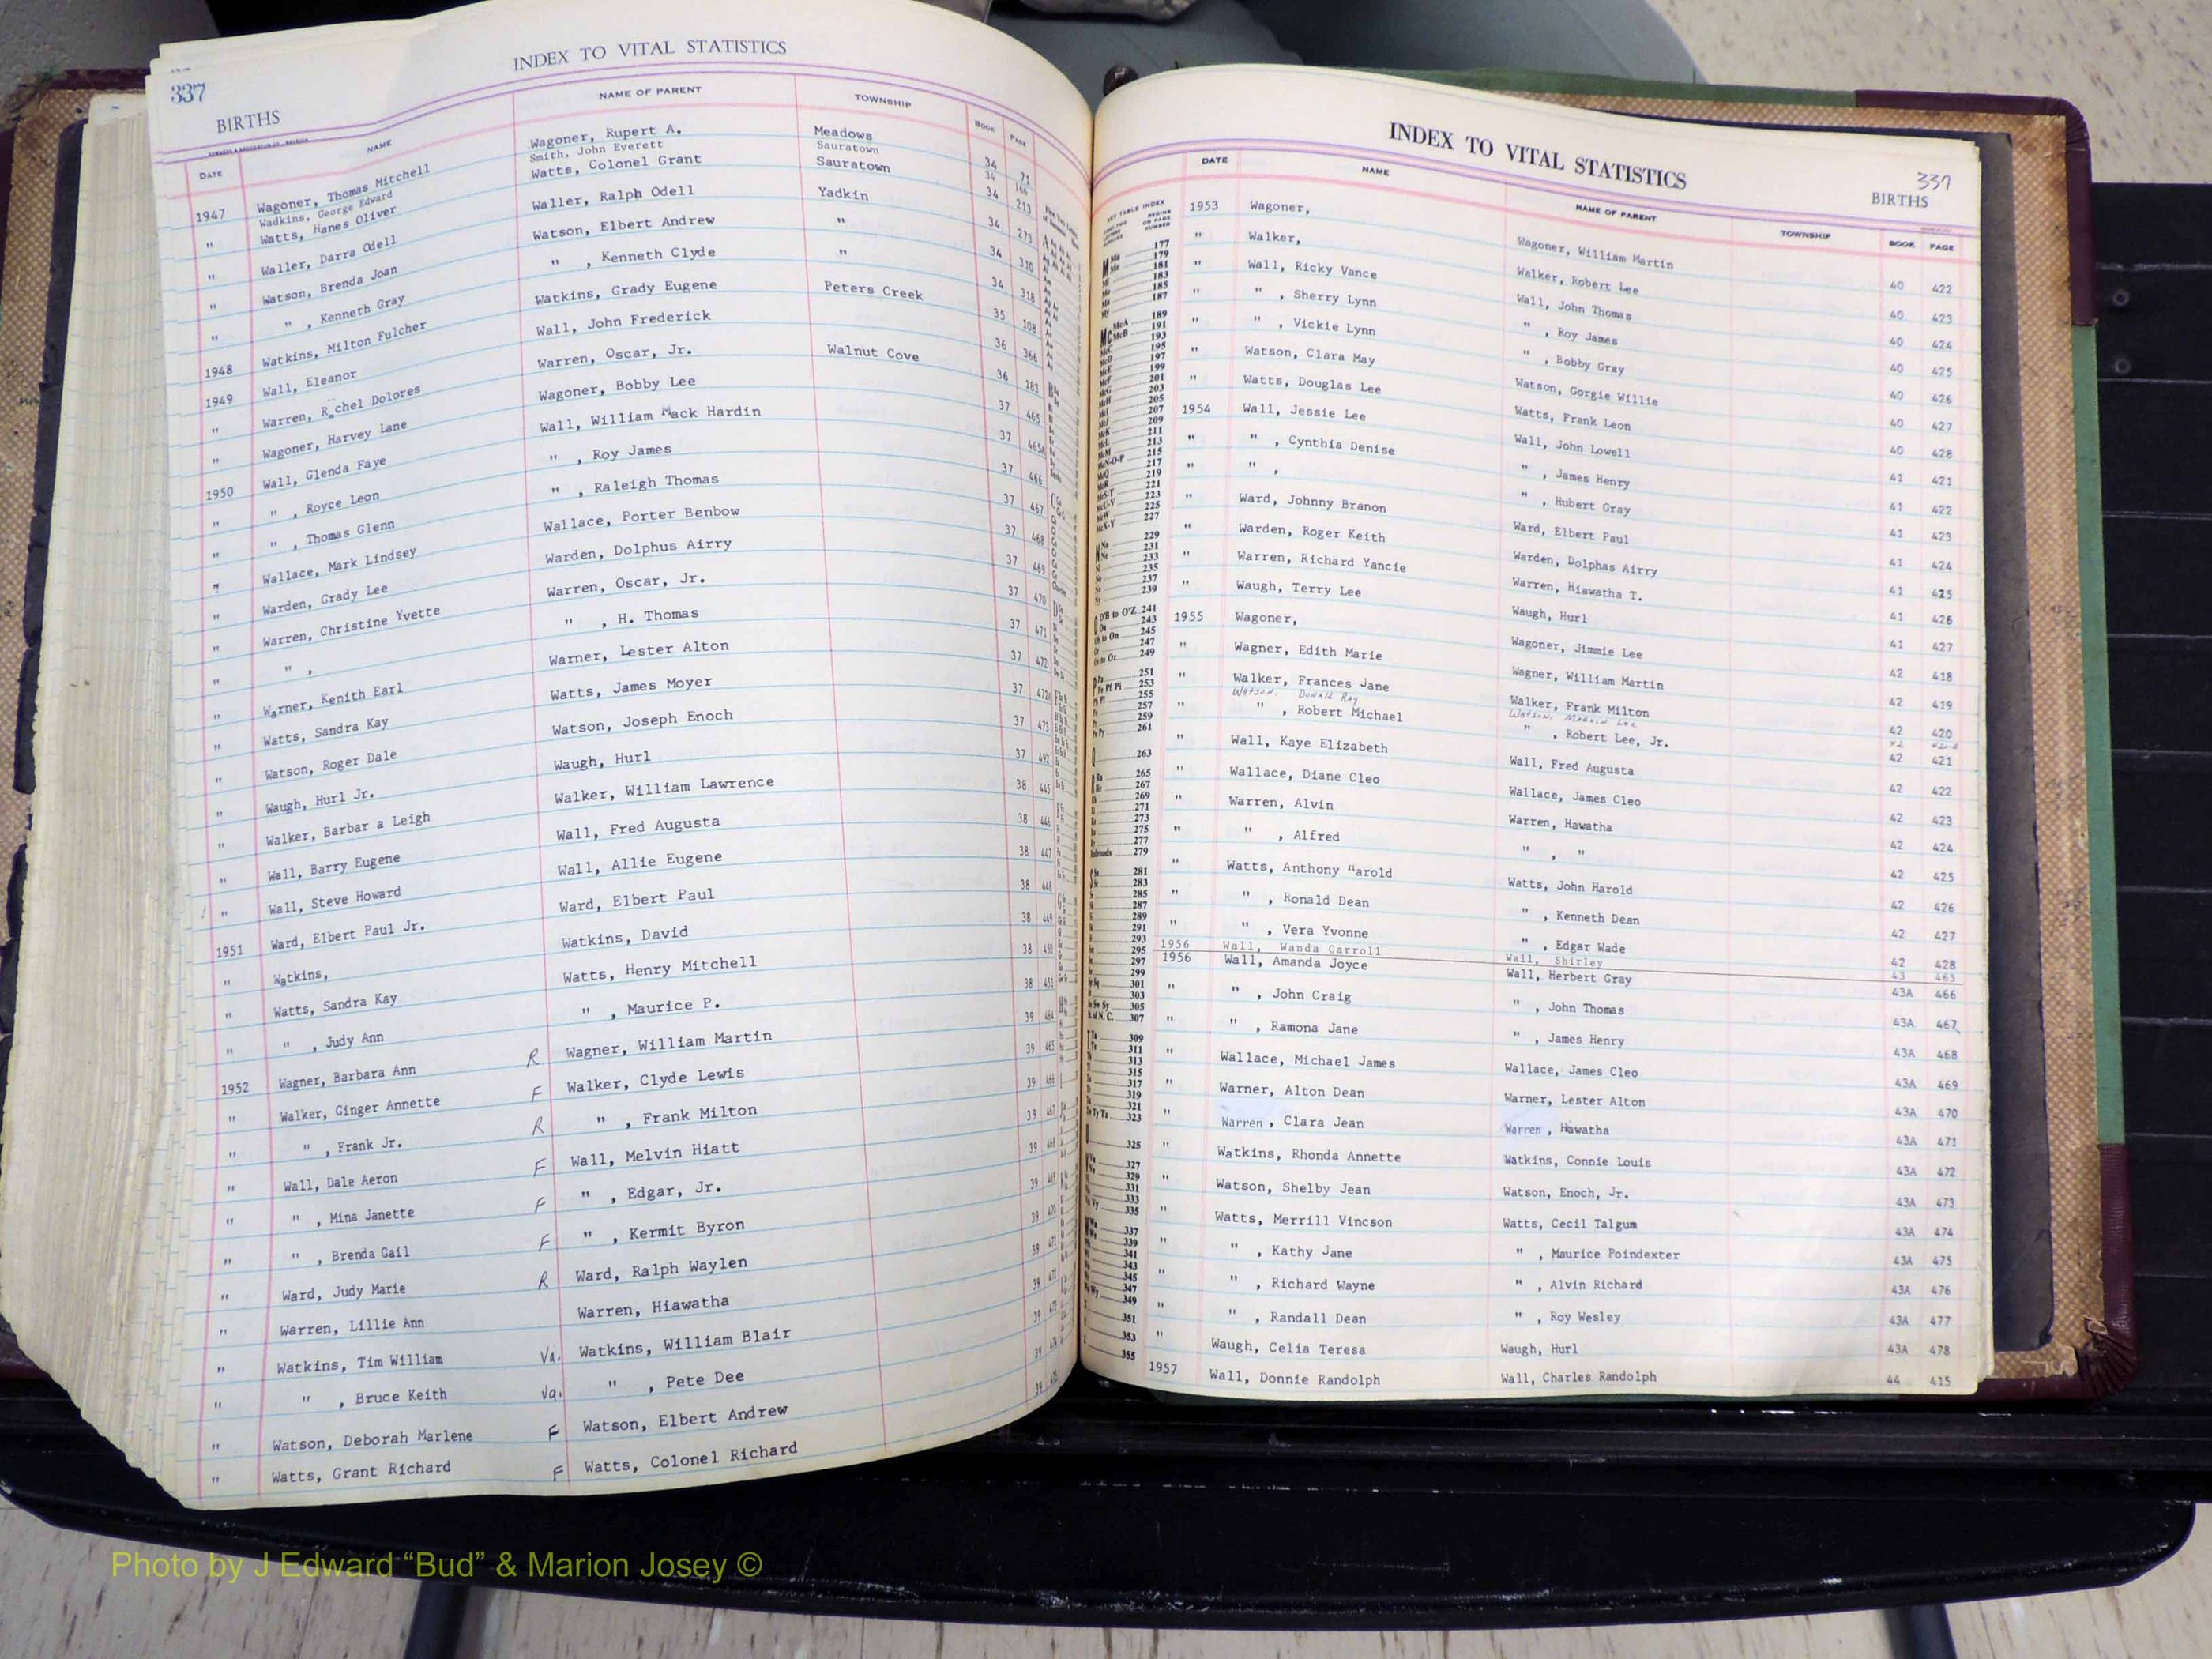 INDEX TO VITAL STATISTICS
337
BIRTHS
DATE NAME NAME OF PARENT TOWNSHIP BOOK PAGE
1947 Wagoner, Thomas Mitchell Wagoner, Rupert A. Meadows 34 71
Wadkins, George Edward Smith, John Everett Sauratown 34 166
" Watts, Hanes Oliver Watts, Colonel Grant Sauratown 34 213
" Waller, Darra Odell Waller, Ralph Odell Yadkin 34 273
" Watson, Brenda Joan Watson, Elbert Andrew " 34 310
" " , Kenneth Gray " , Kenneth Clyde " 34 318
1948 Watkins, Milton Fulcher Watkins, Grady Eugene Peters Creek 35 108
1949 Wall, Eleanor Wall, John Frederick 36 366
" Warren, Rachel Dolores Warren, Oscar, Jr. Walnut Cove 36 183
" Wagoner, Harvey Lane Wagoner, Bobby Lee 37 465
1950 Wall, Glenda Faye Wall, William Mack Hardin 37 465A
" " , Royce Leon " , Roy James 37 466
" " , Thomas Glenn " , Raleigh Thomas 37 467
" Wallace, Mark Lindsey Wallace, Porter Benbow 37 468
" Warden, Grady Lee Warden, Dolphus Airry 37 469
" Warren, Christine Yvette Warren, Oscar, Jr. 37 470
" " , " , H. Thomas 37 471
" Warner, Kenith Earl Warner, Lester Alton 37 472
" Watts, Sandra Kay Watts, James Moyer 37 472A
" Watson, Roger Dale Watson, Joseph Enoch 37 473
" Waugh, Hurl Jr. Waugh, Hurl 37 492
" Walker, Barbar a Leigh Walker, William Lawrence 38 445
" Wall, Barry Eugene Wall, Fred Augusta 38 446
" Wall, Steve Howard Wall, Allie Eugene 38 447
1951 Ward, Elbert Paul Jr. Ward, Elbert Paul 38 448
" Watkins, Watkins, David 38 449
" Watts, Sandra Kay Watts, Henry Mitchell 38 450
" " , Judy Ann " , Maurice P. 38 451
1952 Wagner, Barbara Ann R Wagner, William Martin 39 464
" Walker, Ginger Annette F Walker, Clyde Lewis 39 465
" " , Frank Jr. R " , Frank Milton 39 466
" Wall, Dale Aeron F Wall, Melvin Hiatt 39 467
" " , Mina Janette F " , Edgar, Jr. 39 468
" " , Brenda Gail F " , Kermit Byron 39 469
" Ward, Judy Marie R Ward, Ralph Waylen 39 470
" Warren, Lillie Ann Warren, Hiawatha 39 471
" Watkins, Tim William Va. Watkins, William Blair 39 472
" " , Bruce Keith Va. " , Pete Dee 39 473
" Watson, Deborah Marlene F Watson, Elbert Andrew 39 474
" Watts, Grant Richard F Watts, Colonel Richard 39 475
INDEX TO VITAL STATISTICS
337
BIRTHS
DATE NAME NAME OF PARENT TOWNSHIP BOOK PAGE
1953 Wagoner, Wagoner, William Martin 40 422
" Walker, Walker, Robert Lee 40 423
" Wall, Ricky Vance Wall, John Thomas 40 424
" " , Sherry Lynn " , Roy James 40 425
" " , Vickie Lynn " , Bobby Gray 40 426
" Watson, Clara May Watson, Gorgie Willie 40 427
" Watts, Douglas Lee Watts, Frank Leon 40 428
1954 Wall, Jessie Lee Wall, John Lowell 41 421
" " , Cynthia Denise " , James Henry 41 422
" " , " , Hubert Gray 41 423
" Ward, Johnny Branon Ward, Elbert Paul 41 424
" Warden, Roger Keith Warden, Dolphas Airry 41 425
" Warren, Richard Yancie Warren, Hiawatha T. 41 426
" Waugh, Terry Lee Waugh, Hurl 41 427
1955 Wagoner, Wagoner, Jimmie Lee 42 418
" Wagner, Edith Marie Wagner, William Martin 42 419
" Walker, Frances Jane Walker, Frank Milton 42 420
Watson, Donald Ray Watson, Marvin Lee 42 420-A
" " , Robert Michael " , Robert Lee, Jr. 42 421
" Wall, Kaye Elizabeth Wall, Fred Augusta 42 422
" Wallace, Diane Cleo Wallace, James Cleo 42 423
" Warren, Alvin Warren, Hawatha 42 424
" " , Alfred " , " 42 425
" Watts, Anthony Harold Watts, John Harold 42 426
" " , Ronald Dean " , Kenneth Dean 42 427
" " , Vera Yvonne " , Edgar Wade 42 428
1956 Wall, Wanda Carroll Wall, Shirley 43 465
1956 Wall, Amanda Joyce Wall, Herbert Gray 43A 466
" " , John Craig " , John Thomas 43A 467
" " , Ramona Jane " , James Henry 43A 468
" Wallace, Michael James Wallace, James Cleo 43A 469
" Warner, Alton Dean Warner, Lester Alton 43A 470
" Warren, Clara Jean Warren, Hawatha 43A 471
" Watkins, Rhonda Annette Watkins, Connie Louis 43A 472
" Watson, Shelby Jean Watson, Enoch, Jr. 43A 473
" Watts, Merrill Vincson Watts, Cecil Talgum 43A 474
" " , Kathy Jane " , Maurice Poindexter 43A 475
" " , Richard Wayne " , Alvin Richard 43A 476
" " , Randall Dean " , Roy Wesley 43A 477
" Waugh, Celia Teresa Waugh, Hurl 43A 478
1957 Wall, Donnie Randolph Wall, Charles Randolph 44 415
Photo by J Edward “Bud” & Marion Josey ©